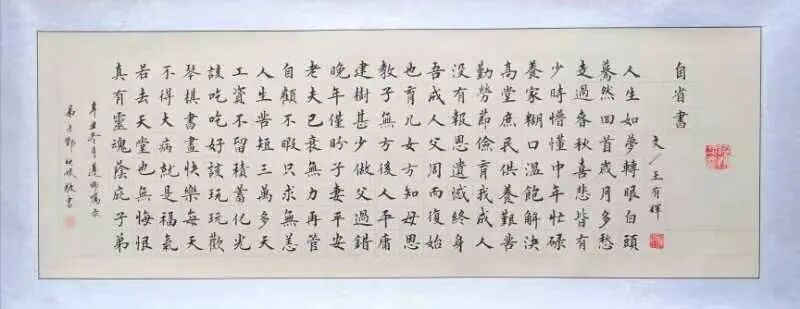 自省書
文／王有輝
人生如夢轉眼白頭
驀然回首歲月多愁
走過春秋喜悲皆有
少時懵懂中年忙碌
養家糊口溫飽解決
高堂庶民供養艱苦
勤勞節儉育我成人
沒有報恩遺憾終身
吾成人父周而復始
也育儿女方知母恩
教子無方後人平庸
建樹甚少做父過錯
晚年僅盼子妻平安
老夫已衰無力再管
自顧不暇只求無恙
人生苦短三萬多天
工資不留積蓄化光
該吃吃好該玩玩歡
琴棋書畫快樂每天
不得大病就是福氣
若去天堂也無悔恨
真有靈魂蔭庇子弟
辛丑冬月
弟子鄧敬書